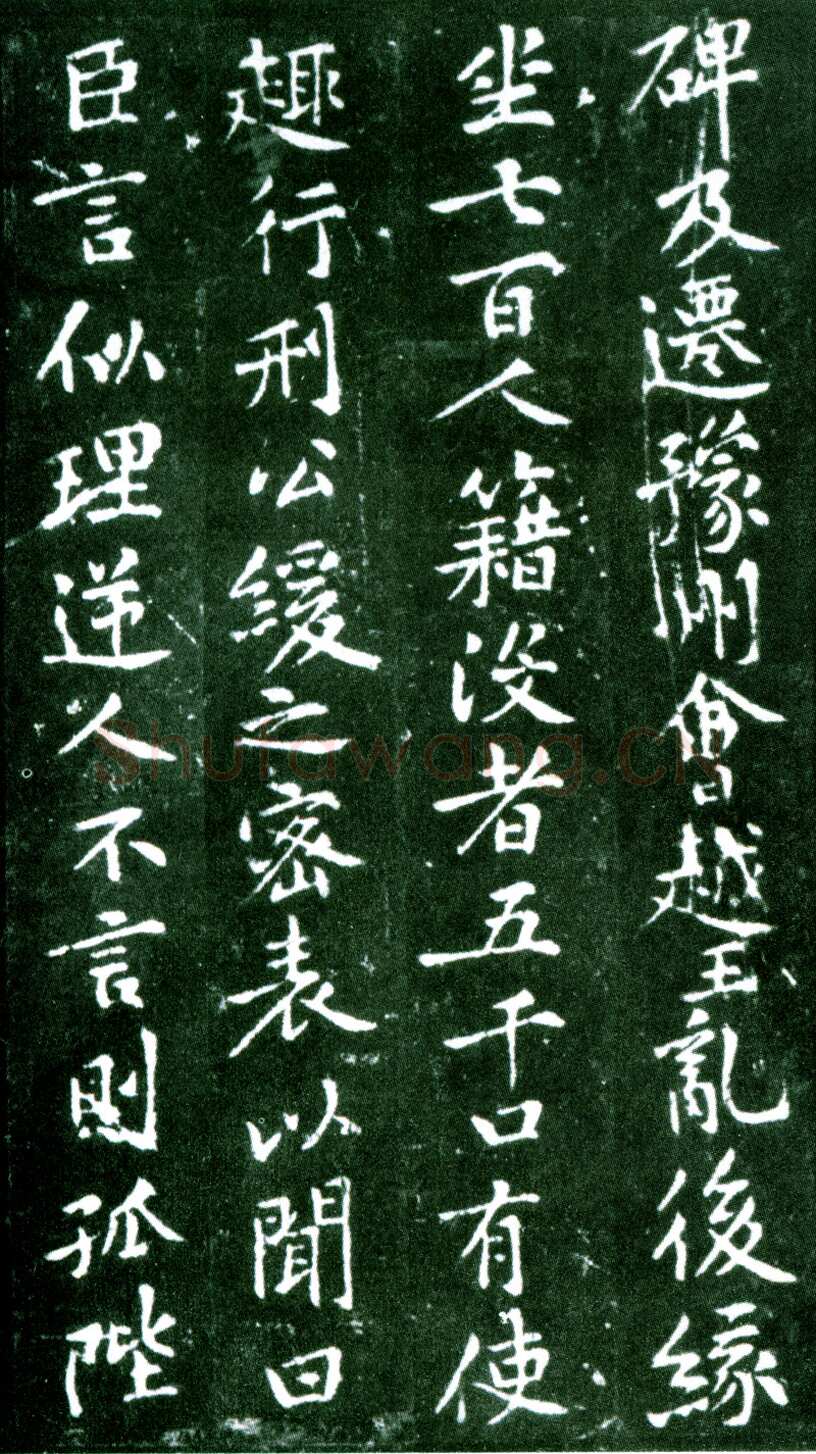 碑及遷豫州會越王亂後緣
坐七百人籍没者五千口有使
趣行刑公緩之密表以聞曰
臣言似理逆人不言則孤陛
Shufawang.CN